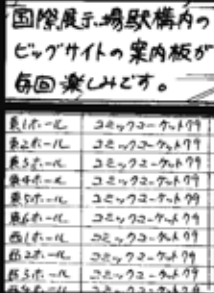 国際展示場駅構内の
ビッグサイトの案内板が
毎回楽しみです。
東1ホール コミックマーケット79
東2ホール コミックマーケット79
東3ホール コミックマーケット79
東4ホール コミックマーケット79
東5ホール コミックマーケット79
東6ホール コミックマーケット79
西1ホール コミックマーケット79
西2ホール コミックマーケット79
西3ホール コミックマーケット79
西4ホール コミックマーケット79